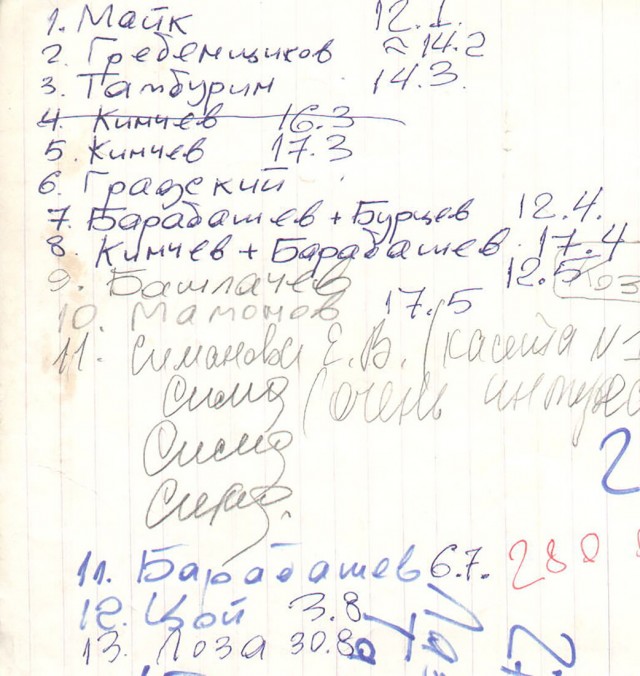 1. Майк 12.1.
2. Гребенщиков ≈ 14.2
3. Тамбурин 14.3.
4. Кинчев 16.3
5. Кинчев 17.3
6. Градский
7. Барабашев + Бурцев 12.4.
8. Кинчев + Барабашев. 17.4
9. Башлачев 12.5
10. Мамонов 17.5
11. Симанова Е.В. (касета N
(очень интерес
11. Барабашев 6.7. 288
12. Цой 3.8
13. Лоза 30.8